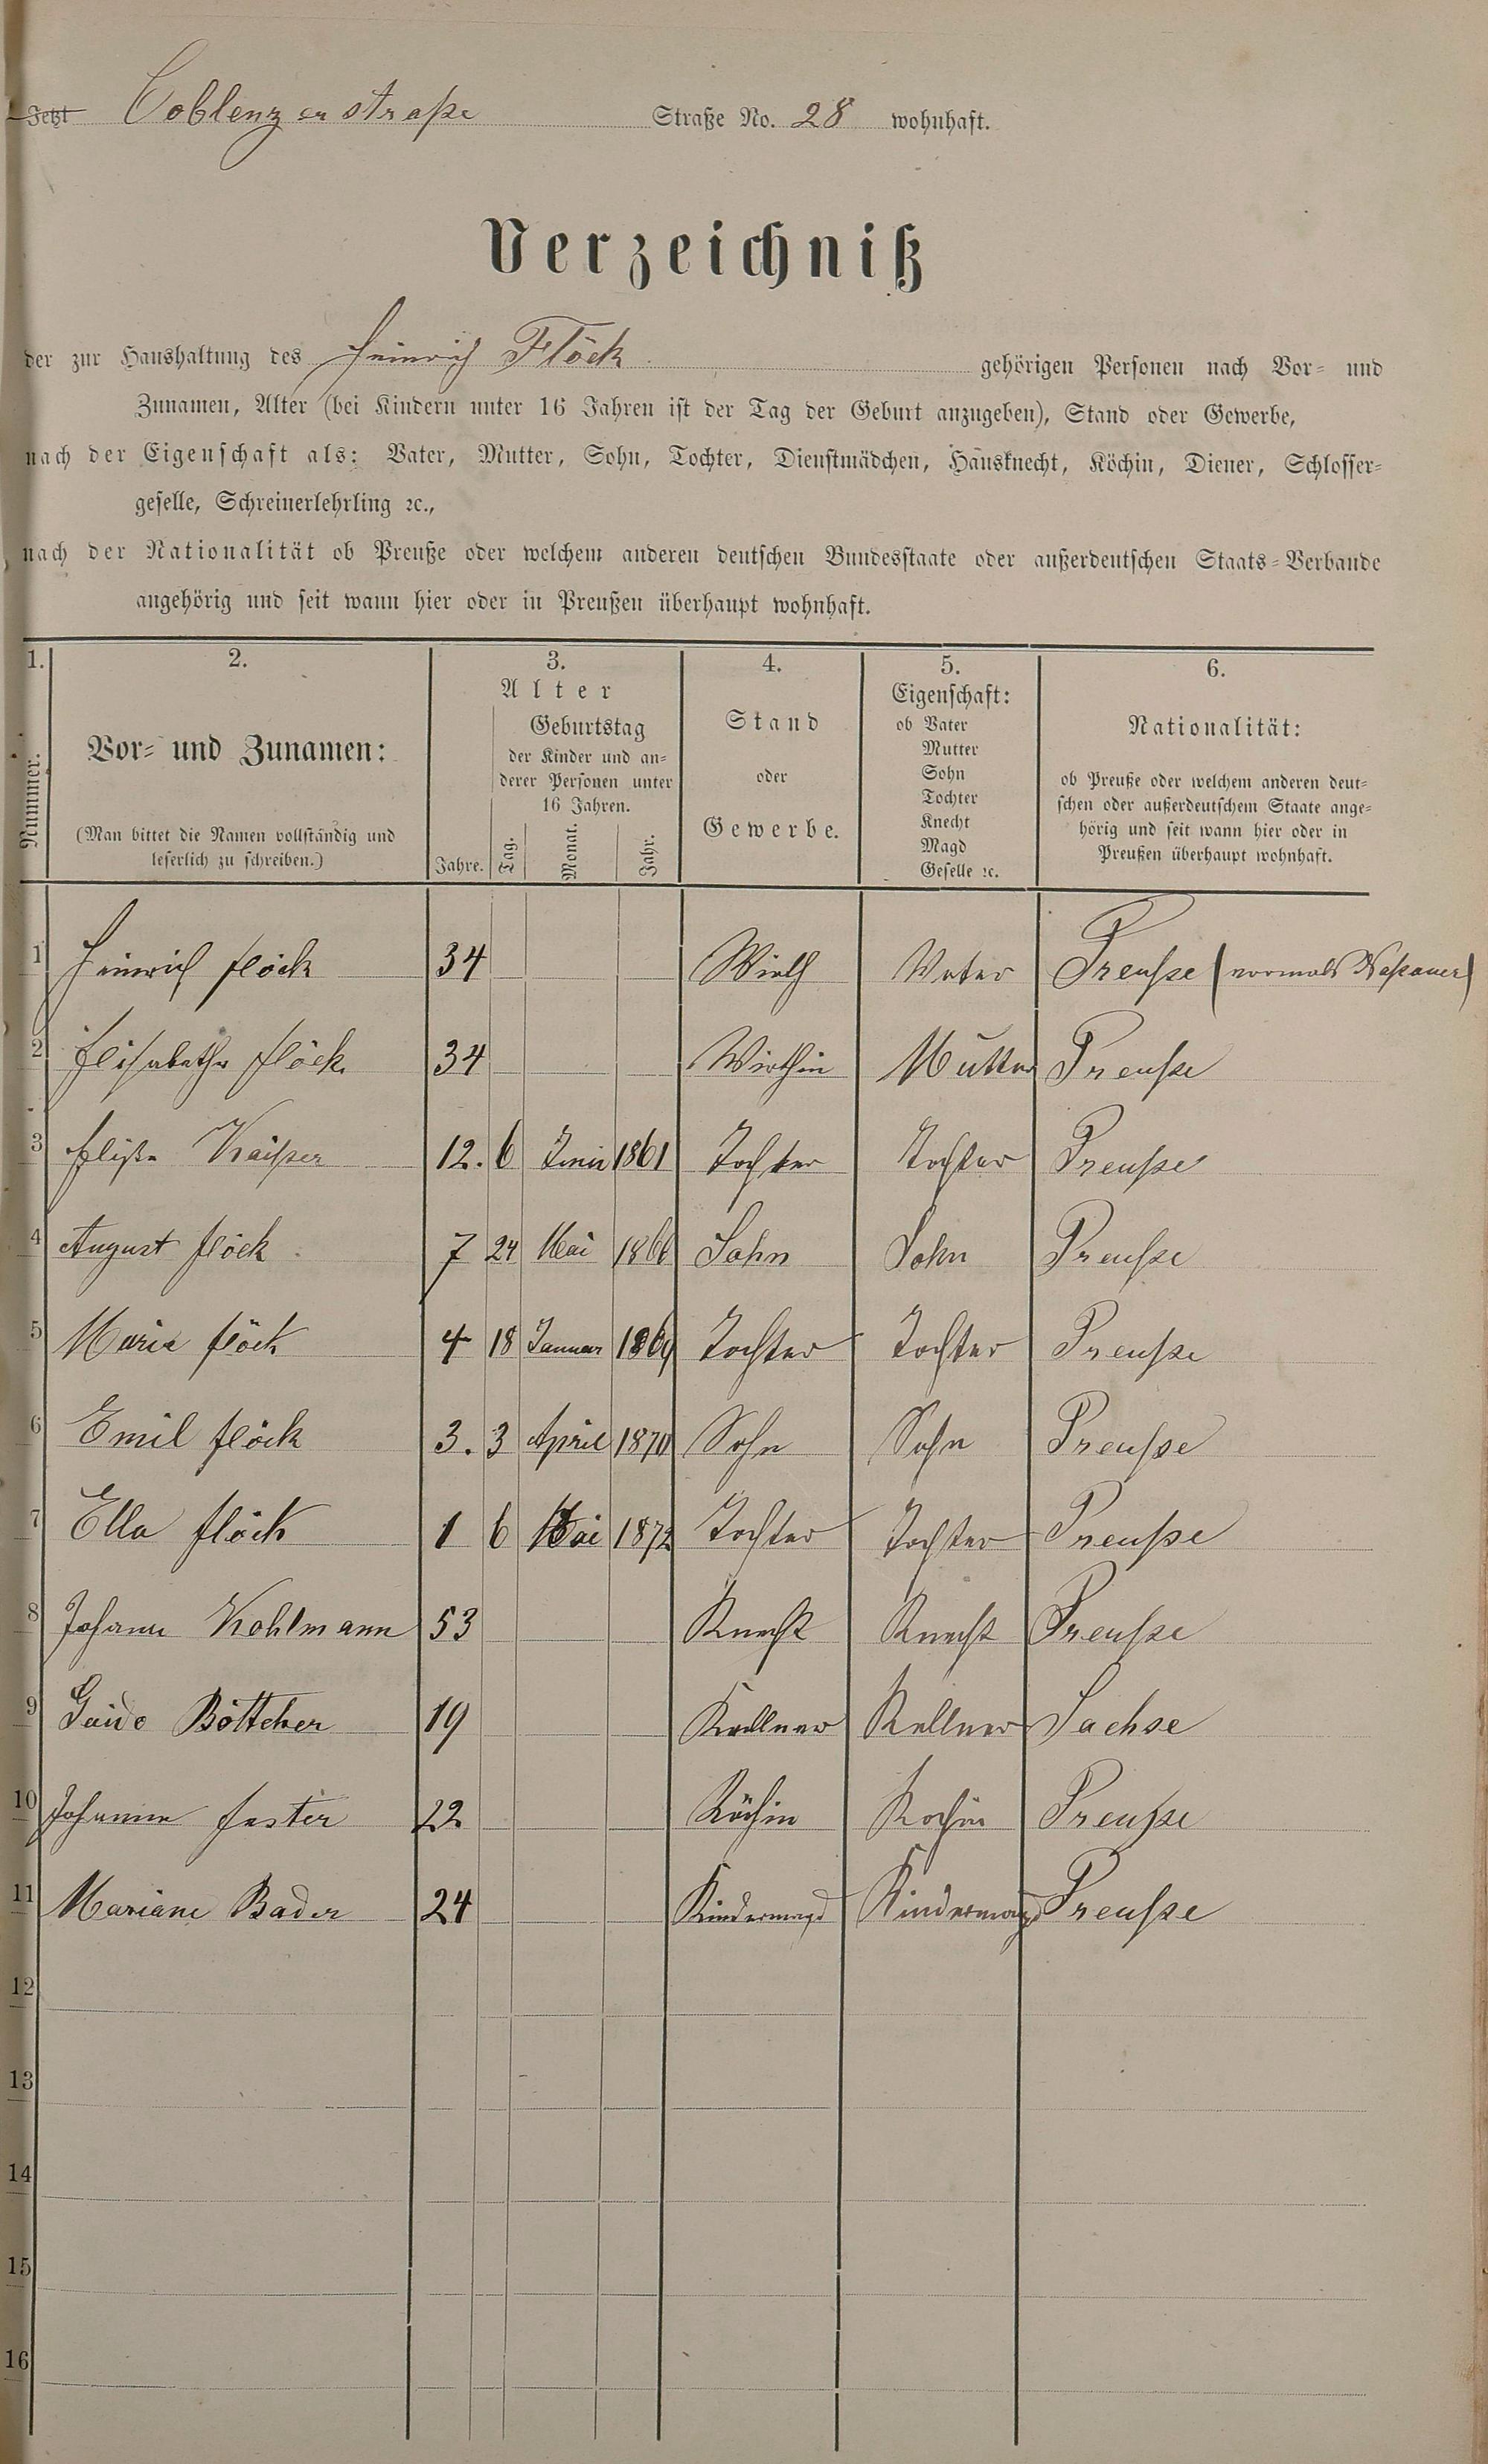 Jetzt Coblenzerstraße Straße No. 28 wohnhaft.
Verzeichniß
der zur Haushaltung des Heinrich Flöck gehörigen Personen nach Vor- und
Zunamen, Alter (bei Kindern unter 16 Jahren ist der Tag der Geburt anzugeben), Stand oder Gewerbe,
nach der Eigenschaft als: Vater, Mutter, Sohn, Tochter, Dienstmädchen, Hausknecht, Köchin, Diener, Schlosser-
geselle, Schreinerlehrling ꝛc.,
nach der Nationalität ob Preuße oder welchem anderen deutschen Bundesstaate oder außerdeutschen Staats-Verbande
angehörig und seit wann hier oder in Preußen überhaupt wohnhaft.
1. 2. 3. 4. 5. 6.
Nummer.
Vor- und Zunamen:
(Man bittet die Namen vollständig und
leserlich zu schreiben.)
Alter
Jahre.
Geburtstag
der Kinder und an-
derer Personen unter
16 Jahren.
Tag. Monat. Jahr.
Stand
oder
Gewerbe.
Eigenschaft:
ob Vater
Mutter
Sohn
Tochter
Knecht
Magd
Geselle ꝛc.
Nationalität:
ob Preuße oder welchem anderen deut-
schen oder außerdeutschem Staate ange-
hörig und seit wann hier oder in
Preußen überhaupt wohnhaft.
1 Heinrich Flöck 34 Wirth Vater Preuße (vormals Naßauer)
2 Elisabetha Flöck 34 Wirthin Mutter Preuße
3 Elise Kaißer 12. 6 Juni 1861 Tochter Tochter Preuße
4 August Flöck 7 24 Mai 1866 Sohn Sohn Preuße
5 Maria Flöck 4 18 Januar 1869 Tochter Tochter Preuße
6 Emil Flöck 3. 3 April 1870 Sohn Sohn Preuße
7 Ella Flöck 1 6 Mai 1872 Tochter Tochter Preuße
8 Johann Kohlmann 53 Knecht Knecht Preuße
9 Guido Böttcher 19 Kellner Kellner Sachse
10 Johanna 22 Köchin Kochin Preuße
11 Mariane Bader 24 Kindermagd Kindermagd Preuße
12
13
14
15
16